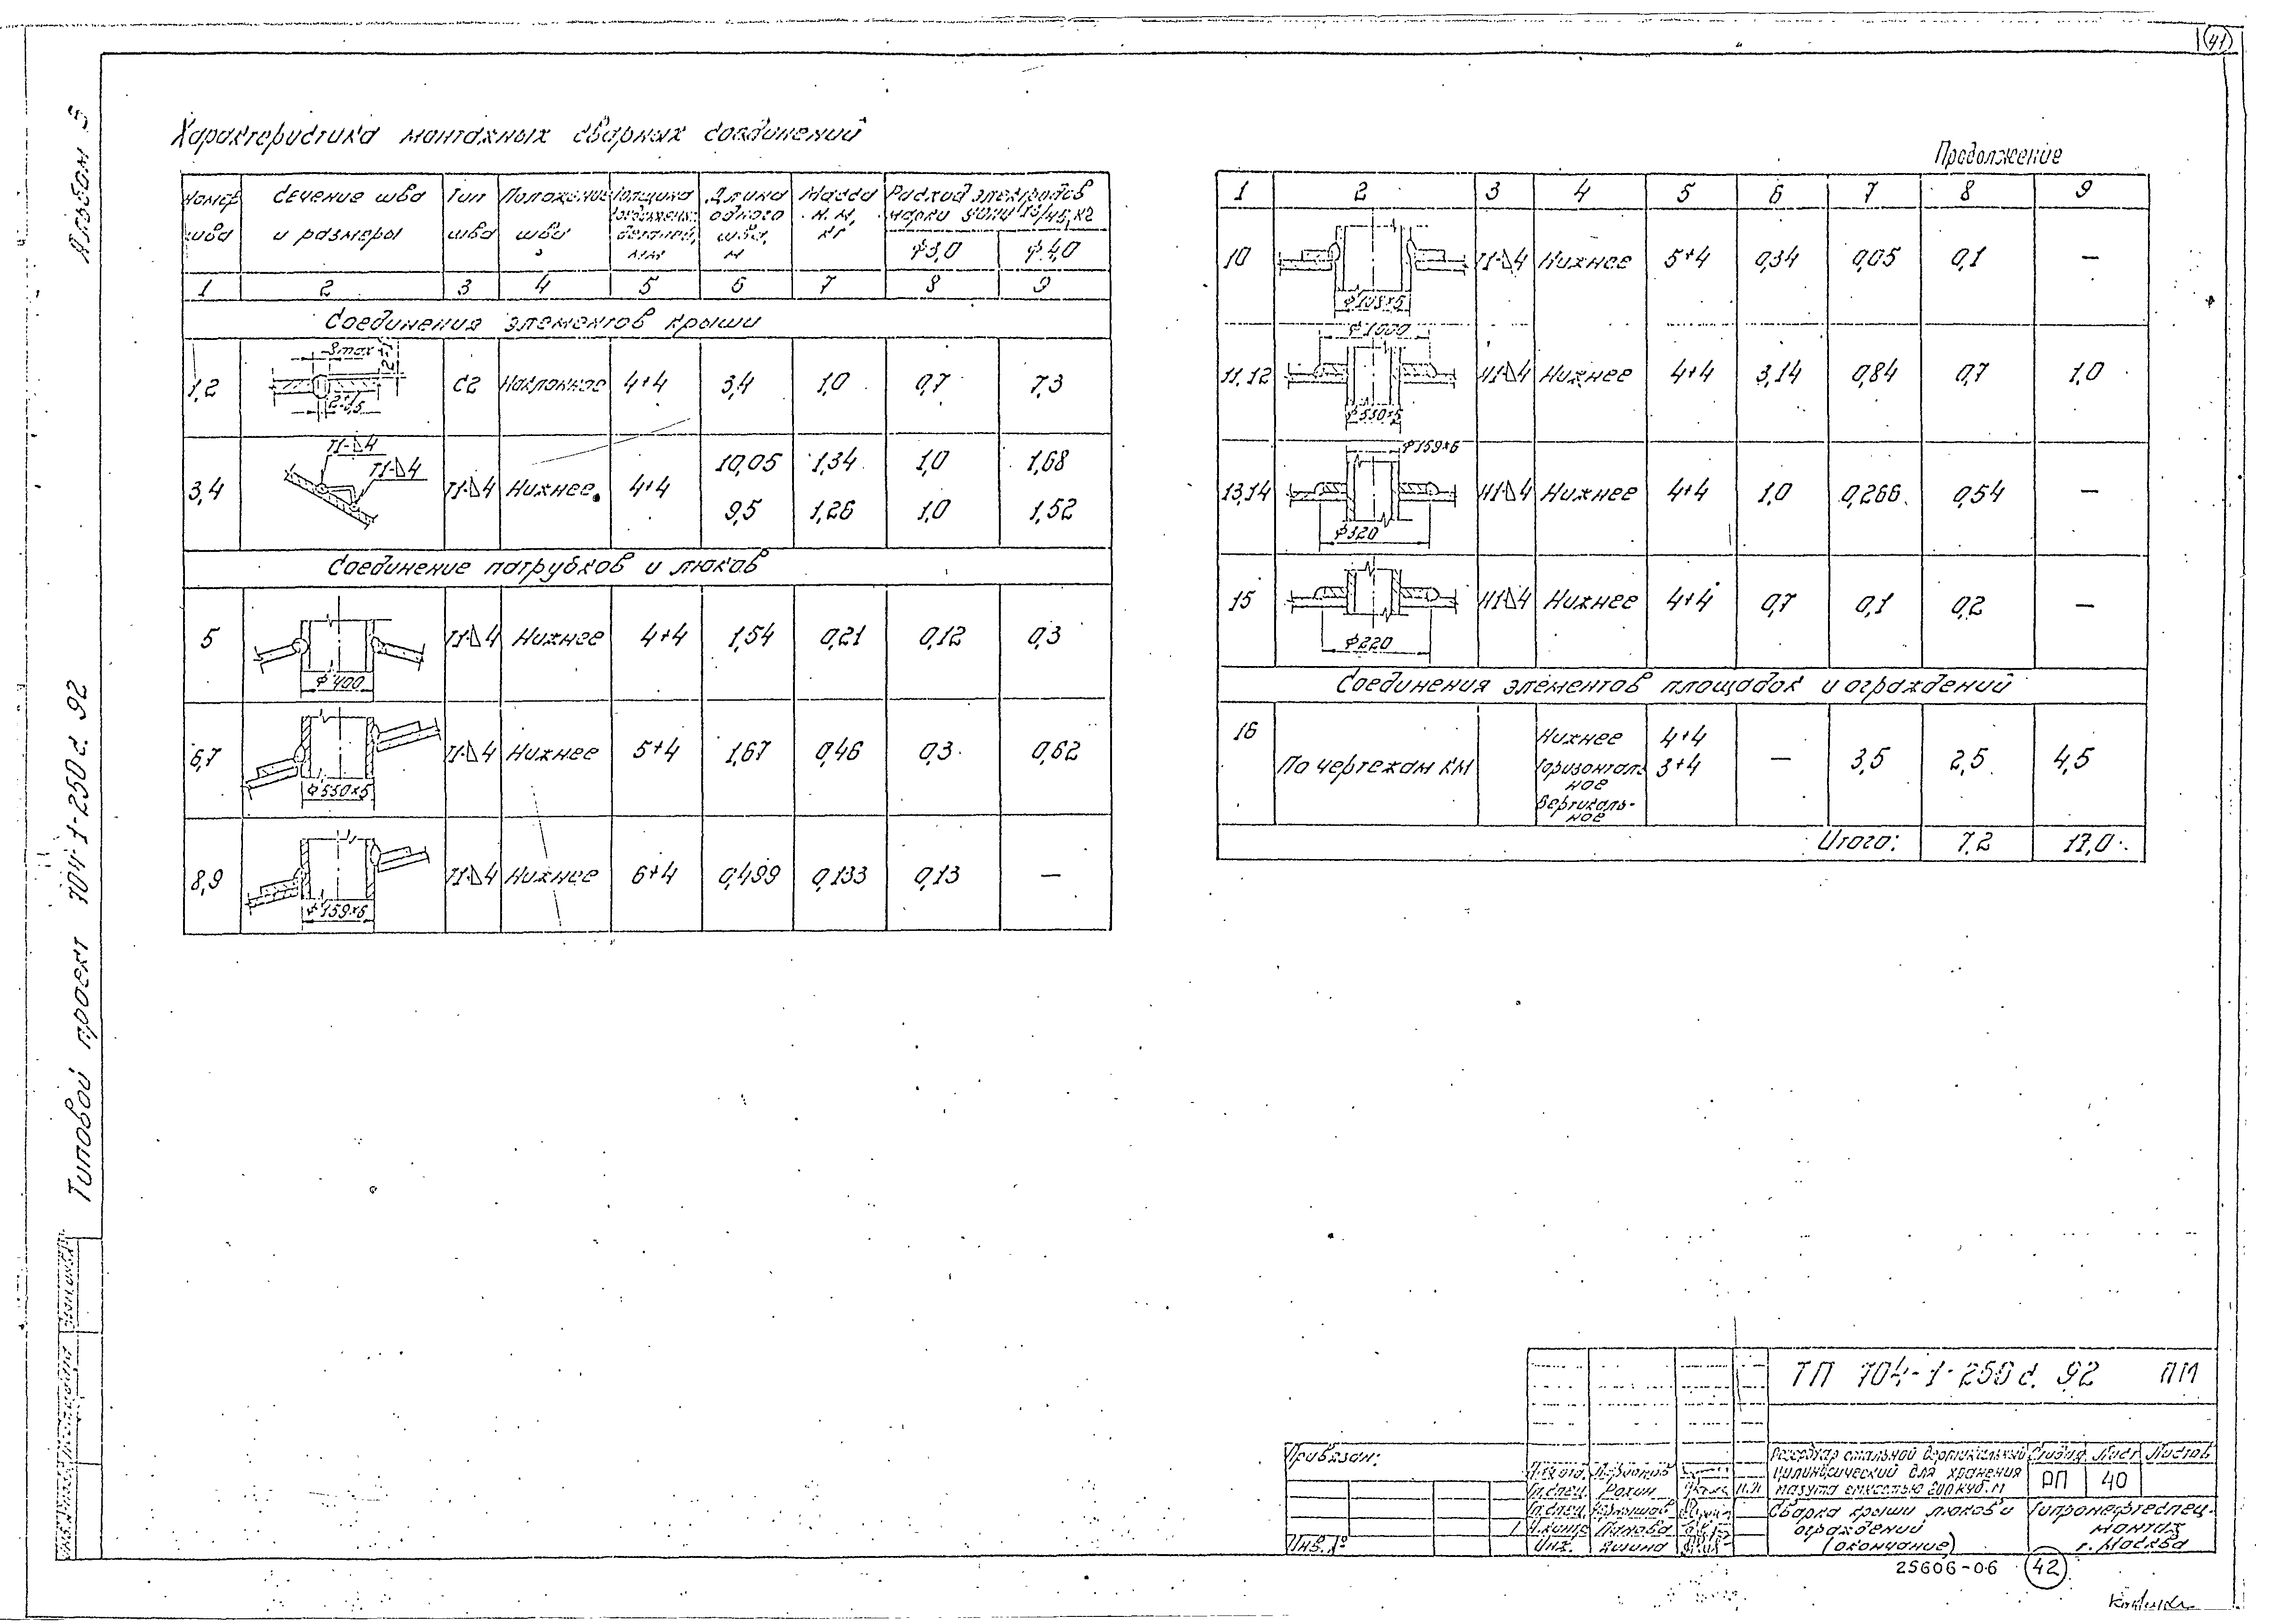 41
Альбом 5
Типовой проект 704-1-250 с. 92
Характеристика монтажных сварных соединений
Номер шва
Сечение шва и размеры
Тип шва
Положение шва
Толщина деталей, мм
Длина одного шва, м
Масса н.м, кг
Расход электродов марки УОНИ 13/45, кг
ф3,0 ф4,0
1 2 3 4 5 6 7 8 9
Соединения элементов крыши
1,2 С2 Наклонное 4+4 3,4 1,0 0,7 7,3
8max
Т1-△4
Т1-△4
3,4 Т1-△4 Нижнее 4+4 10,05 1,34 1,0 1,68
9,5 1,26 1,0 1,52
Соединение патрубков и люков
5 ф400 Т1-△4 Нижнее 4+4 1,54 0,21 0,12 0,3
6,7 ф530×5 Т1-△4 Нижнее 5+4 1,67 0,46 0,3 0,62
8,9 ф159×6 Т1-△4 Нижнее 6+4 0,499 0,133 0,13 —
Продолжение
1 2 3 4 5 6 7 8 9
10 ф108×5 Т1-△4 Нижнее 5+4 0,34 0,05 0,1 —
ф1000
11,12 Н1△4 Нижнее 4+4 3,14 0,84 0,7 1,0
ф530×5
ф159×6
13,14 Н1△4 Нижнее 4+4 1,0 0,266 0,54 —
ф320
15 Н1△4 Нижнее 4+4 0,7 0,1 0,2 —
ф220
Соединения элементов площадок и ограждений
16 По чертежам КМ
Нижнее 4+4
Горизонтальное 3+4
Вертикальное
— 3,5 2,5 4,5
Итого: 7,2 17,0
ТП 704-1-250 с. 92 ПМ
Привязан:
Инв. №
Гл.спец. Рохин
Гл.спец.
Н.контр Панова
Инж.
Резервуар стальной вертикальный
цилиндрический для хранения
мазута емкостью 200 куб.м
Стадия Лист Листов
РП 40
Сварка крыши люков и
ограждений
(окончание)
Гипронефтеспец-
монтаж
г. Москва
25606-06 42